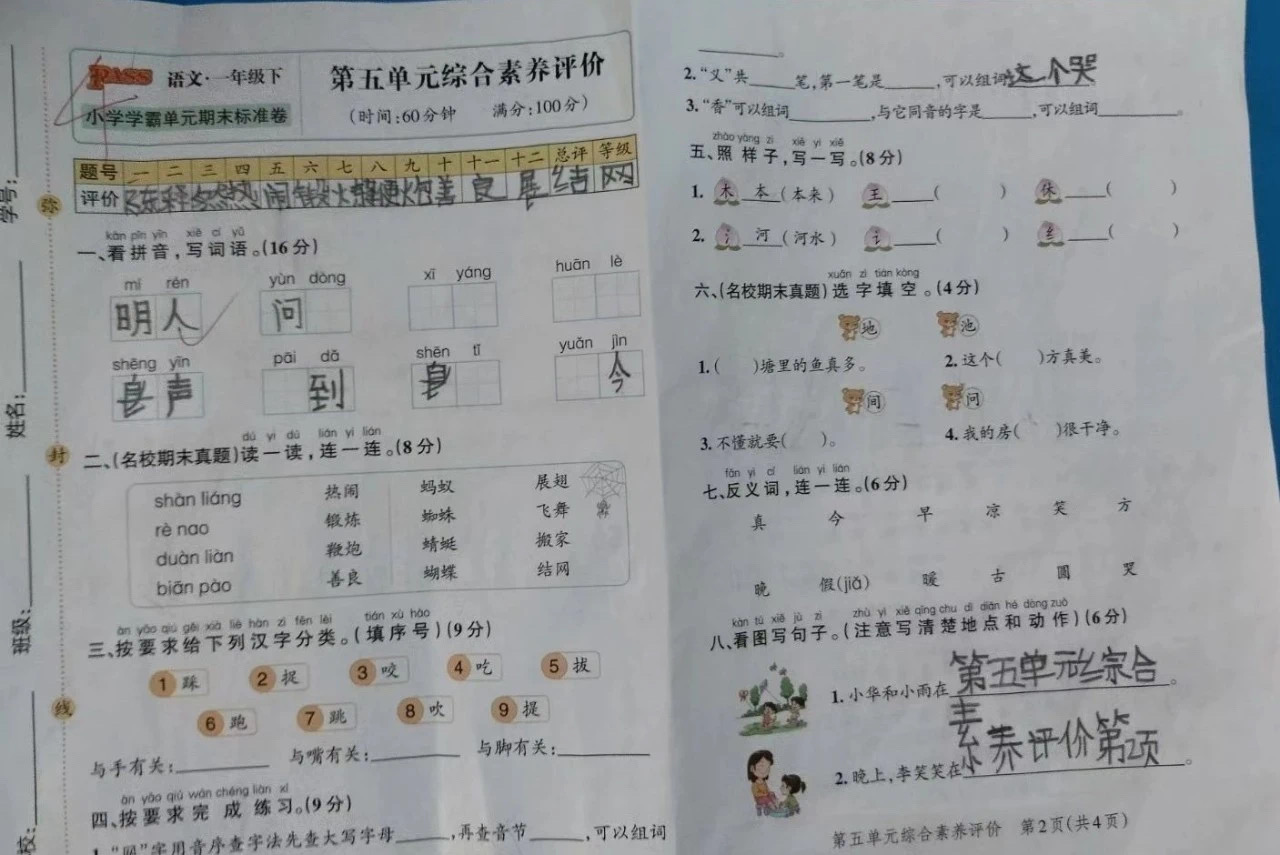 学号：
姓名：
班级：
校：
弥
封
线
PASS 语文·一年级下
小学学霸单元期末标准卷
第五单元综合素养评价
(时间:60分钟 满分:100分)
题号 一 二 三 四 五 六 七 八 九 十 十一 十二 总评 等级
评价 良 展 结 网
kàn pīn yīn xiě cí yǔ
一、看拼音,写词语。(16分)
mí rén yùn dòng xī yáng huān lè
明人 问
shēng yīn pāi dǎ shēn tǐ yuán jìn
身声 到 身 今
dú yi dú lián yi lián
二、(名校期末真题)读一读,连一连。(8分)
shàn liáng 热闹 蚂蚁 展翅
rè nao 锻炼 蜘蛛 飞舞
duàn liàn 鞭炮 蜻蜓 搬家
biān pào 善良 蝴蝶 结网
àn yāo qiú gěi xià liè hàn zì fēn lèi tián xù hào
三、按要求给下列汉字分类。(填序号)(9分)
1 踩 2 捉 3 咬 4 吃 5 拔
6 跑 7 跳 8 吹 9 提
与手有关: 与嘴有关: 与脚有关:
àn yāo qiú wán chéng liàn xí
四、按要求完成练习。(9分)
1."网"字用音序查字法先查大写字母 ,再查音节 ,可以组词
。
2."义"共 笔,第一笔是 ,可以组词这个哭
3."香"可以组词 ,与它同音的字是 ,可以组词 。
zhào yàng zi xiě yi xiě
五、照样子,写一写。(8分)
1. 木 本 (本来) 王 ( ) 休 ( )
2. 氵 河 (河水) 讠 ( ) 纟 ( )
xuǎn zì tián kòng
六、(名校期末真题)选字填空。(4分)
地 池
1.( )塘里的鱼真多。 2.这个( )方真美。
间 问
3.不懂就要( )。 4.我的房( )很干净。
fǎn yì cí lián yi lián
七、反义词,连一连。(6分)
真 今 早 凉 笑 方
晚 假(jiǎ) 暖 古 圆 哭
kàn tú xiě jù zi zhù yì xiě qīng chu dì diǎn hé dòng zuò
八、看图写句子。(注意写清楚地点和动作)(6分)
1.小华和小雨在第五单元综合。
素养评价第2项
2.晚上,李笑笑在 。
第五单元综合素养评价 第2页(共4页)